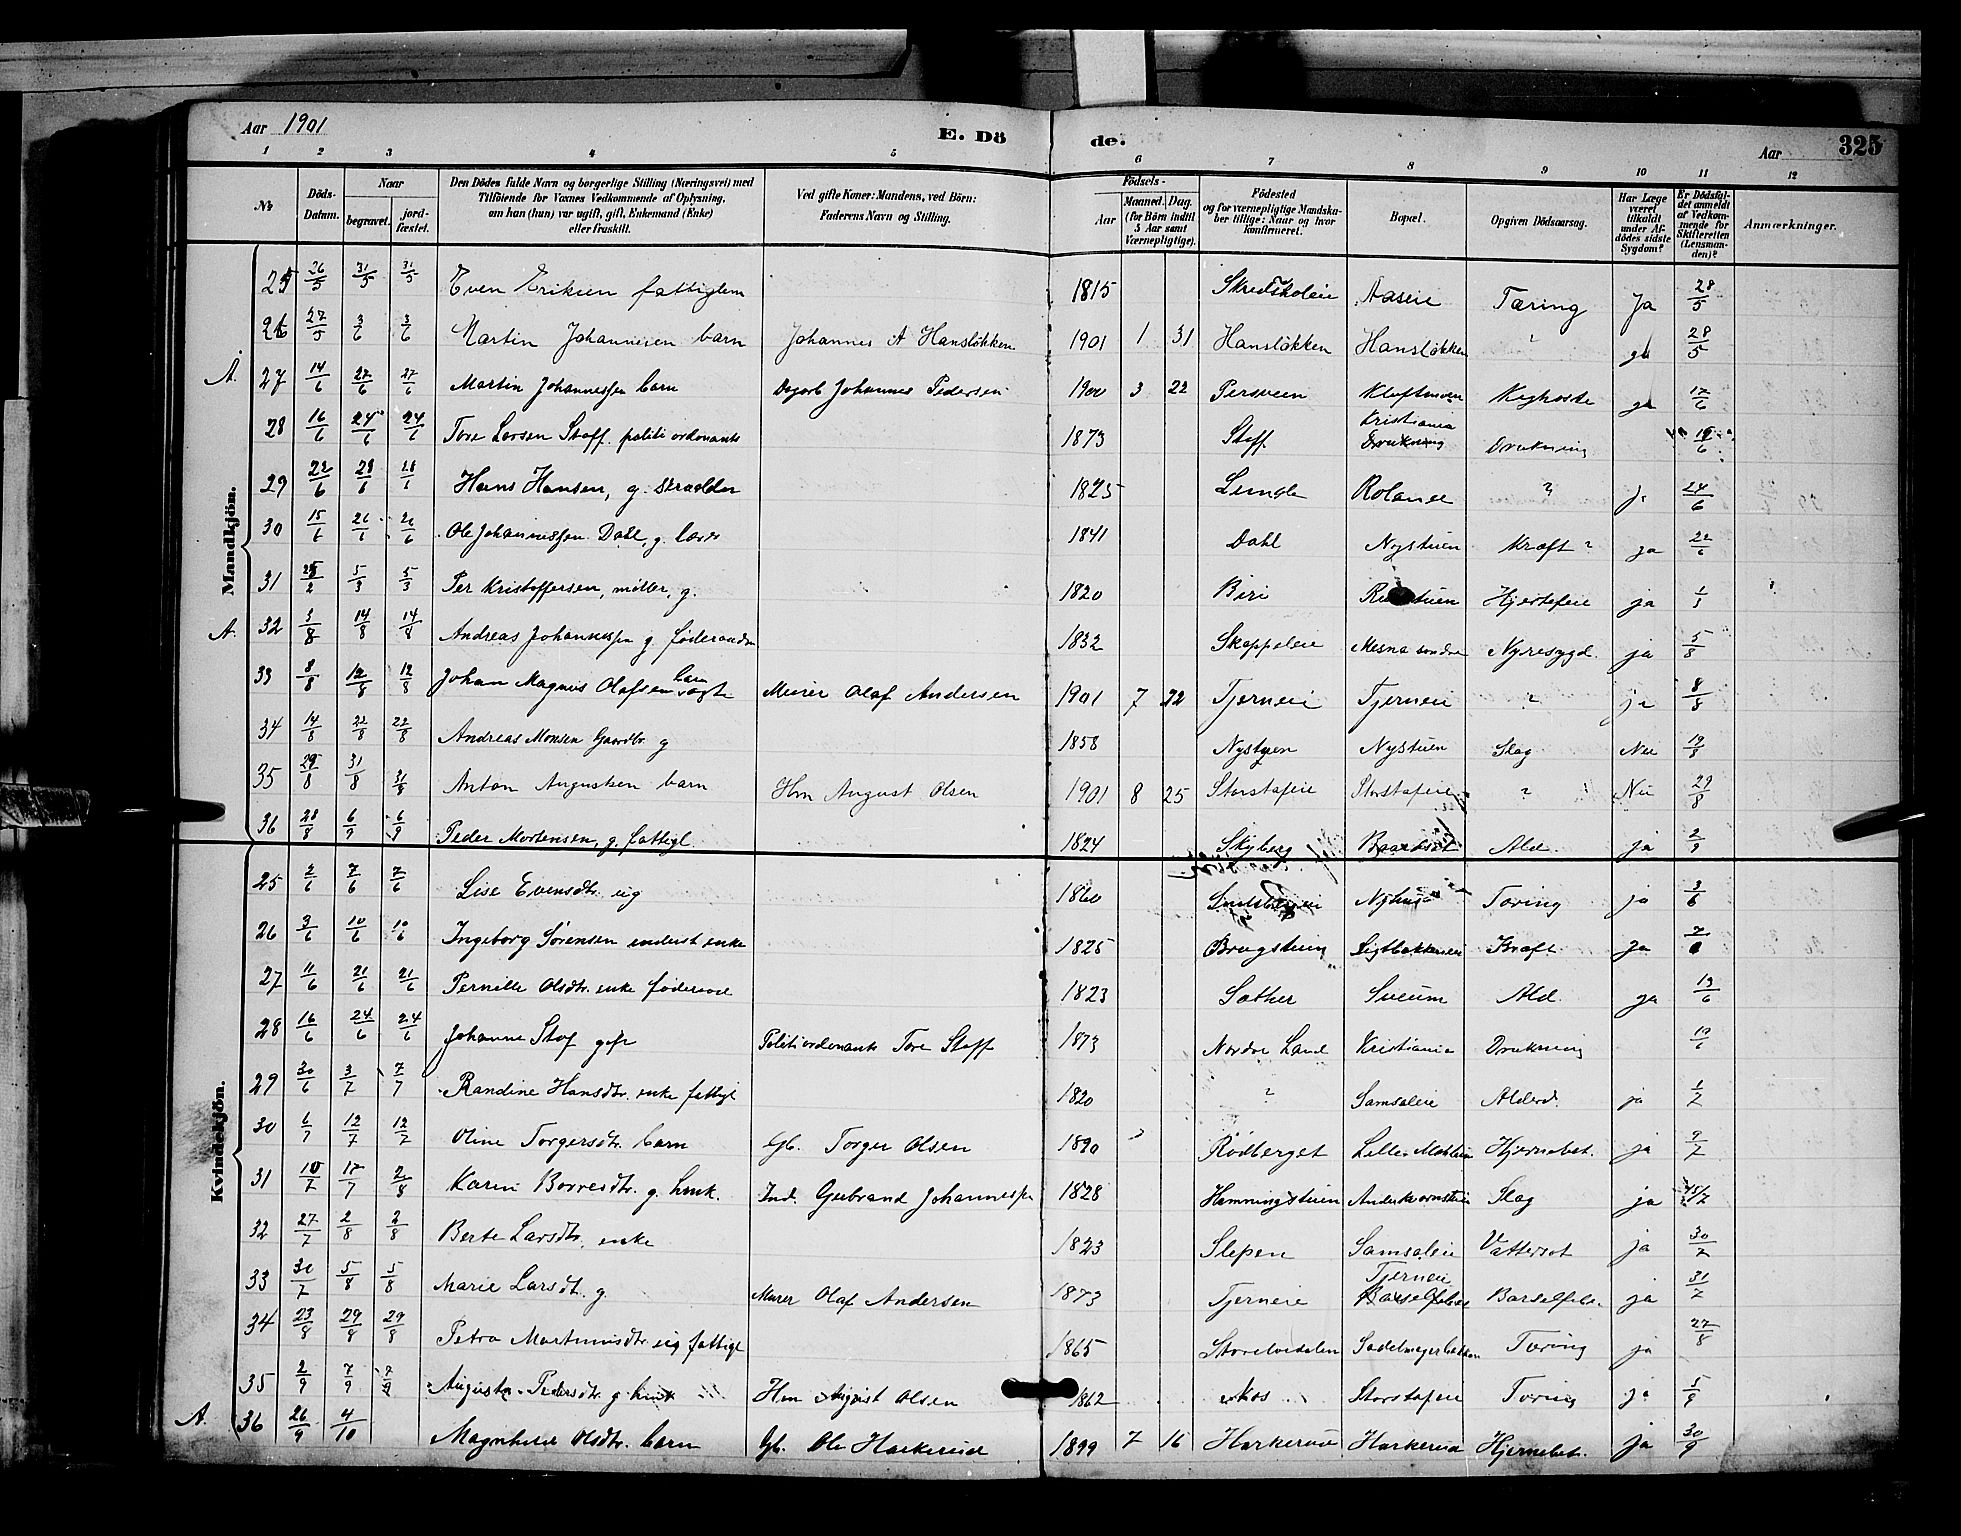 Aar 1901 E. Dö de. Aar 325
1 2 3 4 5 6 7 8 9 10 11 12
№ Döds-Datum. Naar begravet. jord-fæstet. Den Dödes fulde Navn og borgerlige Stilling (Næringsvei) med Tilföiende for Voxnes Vedkommende af Oplysning, om han (hun) var ugift, gift, Enkemand (Enke) eller fraskilt. Ved gifte Koner: Mandens, ved Börn: Faderens Navn og Stilling. Födsels- Aar Maaned. Dag. (for Börn indtil 5 Aar samt Værnepligtige). Födested og for værnepligtige Mandskaber tillige: Naar og hvor konfirmeret. Bopæl. Opgiven Dödsaarsag. Har Læge været tilkaldt under Afdödes sidste Sygdom? Er Dödsfaldet anmeldt af Vedkommende for Skifteretten (Lensmanden)? Anmærkninger.
Mandkjön.
25 26/5 31/5 31/5 Even Eriksen fattiglem 1815 Aaseie Tæring Ja 28/5
26 27/5 3/6 3/6 Martin Johannesen barn Johannes A Hansløkken 1901 1 31 Hansløkken Hansløkken ? ja 28/5
A. 27 14/6 27/6 27/6 Martin Johannessen barn Dagarb Johannes Pedersen 1900 3 22 Persveen Kighoste ja 17/6
28 16/6 24/6 24/6 Tore Larsen Stoff politi ordonants 1873 Stoff Kristiania Drukning Drukning
29 22/6 28/6 28/6 Hans Hansen, g. skrædder 1825 Lunde ? ja 24/6
30 15/6 26/6 26/6 Ole Johannessen Dahl, g. lærer 1841 Dahl Nystuen Kræft ? ja 22/6
31 5/3 5/3 Per Kristoffersen, møller, g. 1820 Biri Hjertefeil ja
A. 32 3/8 14/8 14/8 Andreas Johannessen g føderaadm 1832 Skappeleie Mesna søndre Nyresygd. ja 5/8
33 8/8 12/8 12/8 Johan Magnus Olafsen barn uægte Murer Olaf Andersen 1901 7 22 Tjerneie Tjerneie ? ja 8/8
34 14/8 22/8 22/8 Andreas Monsen Gaardbr. g 1858 Nystuen Nystuen Slag Nei 19/8
35 29/8 31/8 31/8 Anton Augustsen barn Hm August Olsen 1901 8 25 Storstafeie Storstafeie ? Nei 29/8
36 28/8 6/9 6/9 Peder Mortensen, g. fattigl. 1824 Skyberg Ald. ja 2/9
Kvindekjön.
25 2/6 7/6 7/6 Lise Evensdtr. ug 1860 Tæring ja 3/6
26 3/6 10/6 10/6 Ingeborg Sørensen enke 1825 Kræft. ja
27 11/6 21/6 21/6 Pernille Olsdtr. enke føderaad 1823 Sæther Sveum Ald. ja 13/6
28 16/6 24/6 24/6 Johanne Stof gift Politiordonants Tore Stoff 1873 Nordre Land Kristiania Drukning
29 30/6 3/7 7/7 Randine Hansdtr. enke fattigl 1820 ? Samsaleie Alderd. ja 1/7
30 6/7 12/7 12/7 Oline Torgersdtr. barn Gb. Torger Olsen 1890 Rødberget Hjernebet. ja 9/7
31 10/7 17/7 2/8 Karen Borresdtr. g. Ind. Gulbrand Johannessen 1828 Hemmingstuen Slag ja 15/7
32 27/7 2/8 2/8 Berte Larsdtr. enke 1823 Slepen Samsaleie Vattersot ja 30/7
33 30/7 5/8 5/8 Marie Larsdtr. g. Murer Olaf Andersen 1873 Tjerneie Tjerneie Barselfeber Barselfeb. ja 31/7
34 23/8 29/8 29/8 Petra Martinusdtr. ug fattigl 1865 Storelvedalen Sadelmagerbakken Tæring ja 27/8
35 2/9 7/9 7/9 Augusta Pedersdtr. g. Hm August Olsen 1862 Storstafeie Tæring ja 5/9
A. 36 26/9 4/10 Magnhild Olsdtr. barn Gb. Ole Harkerud 1899 7 16 Harkerud Harkerud Hjernebet. ja 30/9